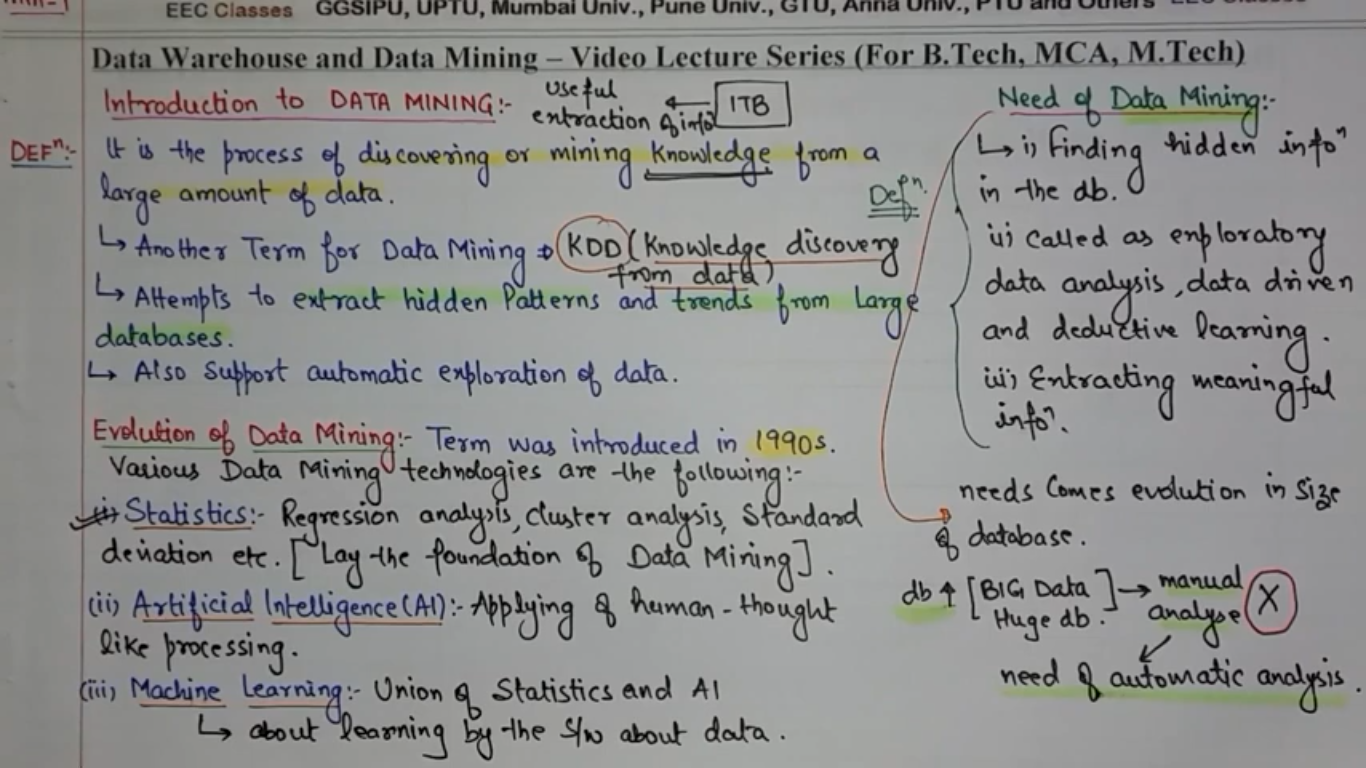 EEC Classes GGSIPU, UPTU, Mumbai Univ., Pune Univ., GTU, Anna Univ., PTU and Others
Data Warehouse and Data Mining – Video Lecture Series (For B.Tech, MCA, M.Tech)
Introduction to DATA MINING:-
useful
extraction of info ← 1TB
DEFⁿ:- It is the process of discovering or mining knowledge from a
large amount of data.
Defⁿ.
↳ Another Term for Data Mining ⇒ KDD (Knowledge discovery
from data)
↳ Attempts to extract hidden Patterns and trends from Large
databases.
↳ Also Support automatic exploration of data.
Evolution of Data Mining:- Term was introduced in 1990s.
Various Data Mining technologies are the following:-
(i) Statistics:- Regression analysis, Cluster analysis, Standard
deviation etc. [Lay the foundation of Data Mining].
(ii) Artificial Intelligence (AI):- Applying of human-thought
like processing.
(iii) Machine Learning:- Union of Statistics and AI
↳ about learning by the S/w about data.
Need of Data Mining:-
↳ i) Finding hidden infoⁿ
in the db.
ii) called as exploratory
data analysis, data driven
and deductive learning.
iii) Extracting meaningful
infoⁿ.
needs Comes evolution in Size
of database.
db ↑ [BIG Data → manual X
Huge db.] analyse
need of automatic analysis.